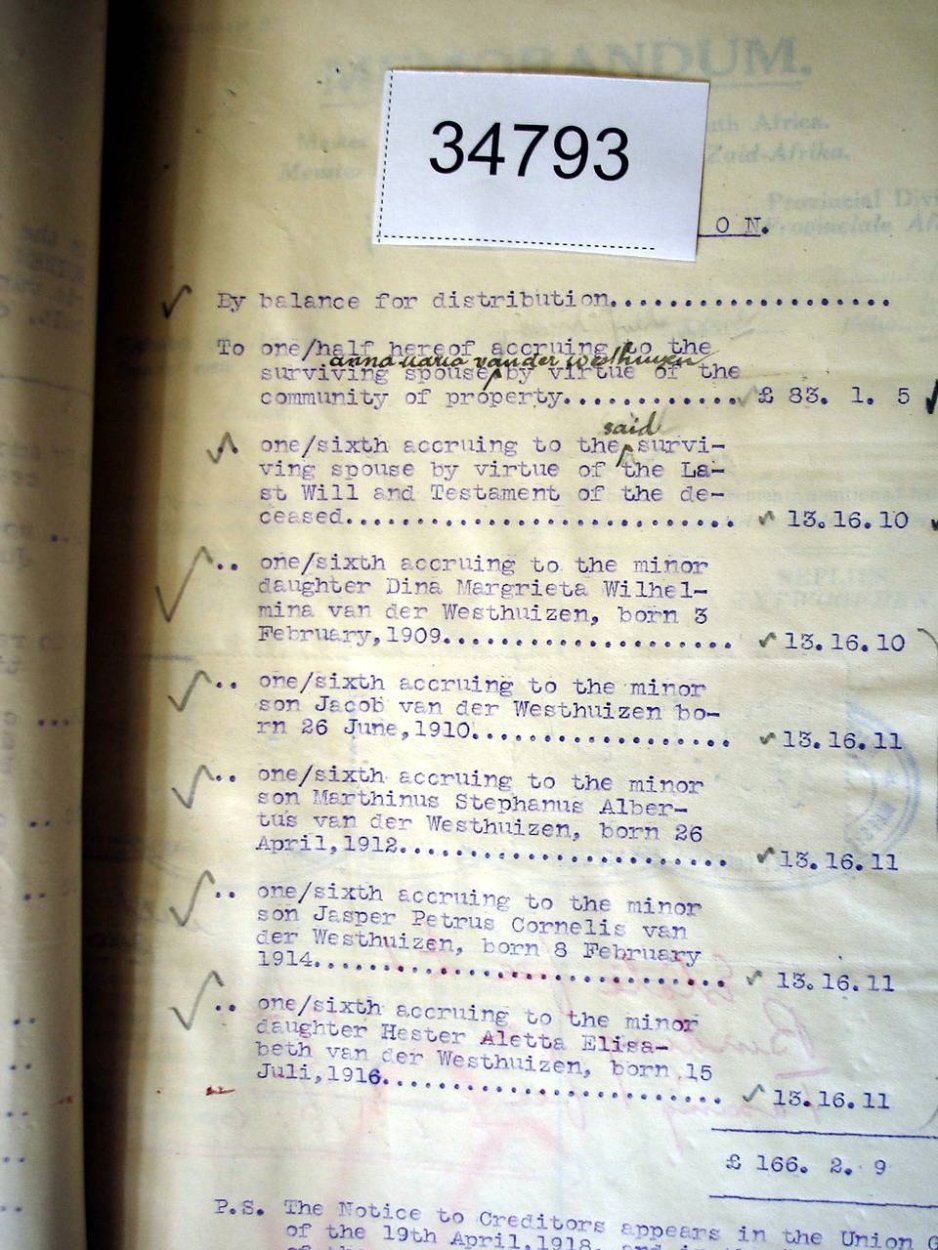 MEMORANDUM.
34793
uth Africa.
Zuid-Afrika.
Provincial Divi
Provinciale Af
O N.
By balance for distribution...................
To one/half hereof accruing to the
anna maria van der westhuizen
surviving spouse by virtue of the
community of property............ £ 83. 1. 5
said
one/sixth accruing to the survi-
ving spouse by virtue of the La-
st Will and Testament of the de-
ceased........................... 13.16.10
.. one/sixth accruing to the minor
daughter Dina Margrieta Wilhel-
mina van der Westhuizen, born 3
February,1909.................... 13.16.10
.. one/sixth accruing to the minor
son Jacob van der Westhuizen bo-
rn 26 June,1910.................. 13.16.11
.. one/sixth accruing to the minor
son Marthinus Stephanus Alber-
tus van der Westhuizen, born 26
April,1912....................... 13.16.11
.. one/sixth accruing to the minor
son Jasper Petrus Cornelis van
der Westhuizen, born 8 February
1914............................. 13.16.11
.. one/sixth accruing to the minor
daughter Hester Aletta Elisa-
beth van der Westhuizen, born 15
Juli,1916........................ 13.16.11
£ 166. 2. 9
P.S. The Notice to Creditors appears in the Union G
of the 19th April,1918, and in